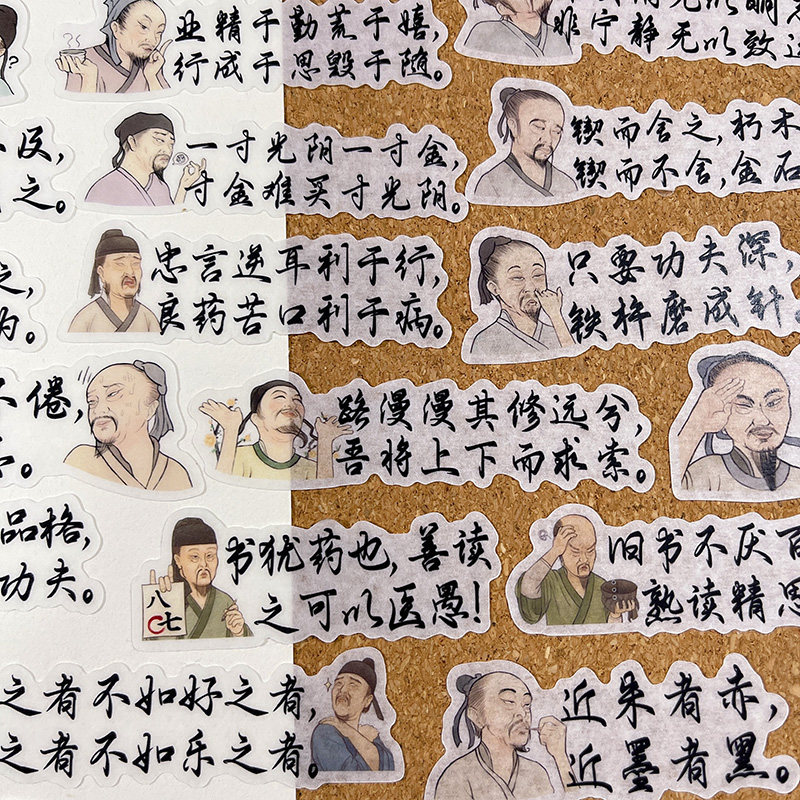 业精于勤荒于嬉，
行成于思毁于随。
非宁静无以致远
?
一寸光阴一寸金，
寸金难买寸光阴。
锲而舍之，朽木
锲而不舍，金石
之。
忠言逆耳利于行，
良药苦口利于病。
只要功夫深，
铁杵磨成针。
之，
为。
不倦，
路漫漫其修远兮，
吾将上下而求索。
品格，
功夫。
书犹药也，善读
之可以医愚！
八
〇七
旧书不厌百
熟读精思
之者不如好之者，
之者不如乐之者。
近朱者赤，
近墨者黑。